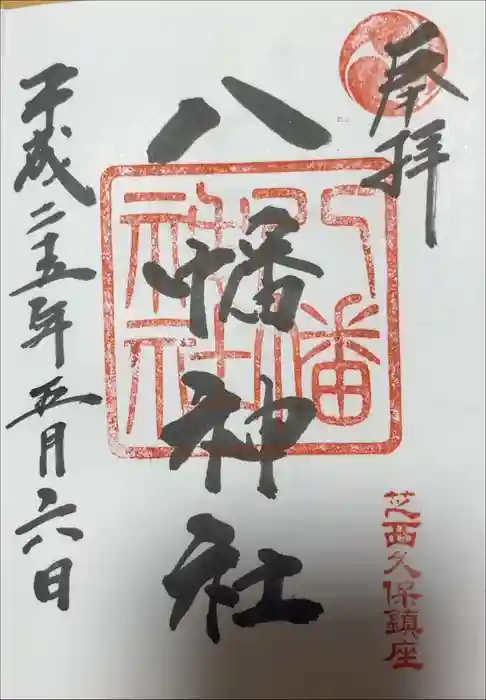 奉拝
八幡神社
八幡神社
芝西久保鎮座
平成二十五年五月六日